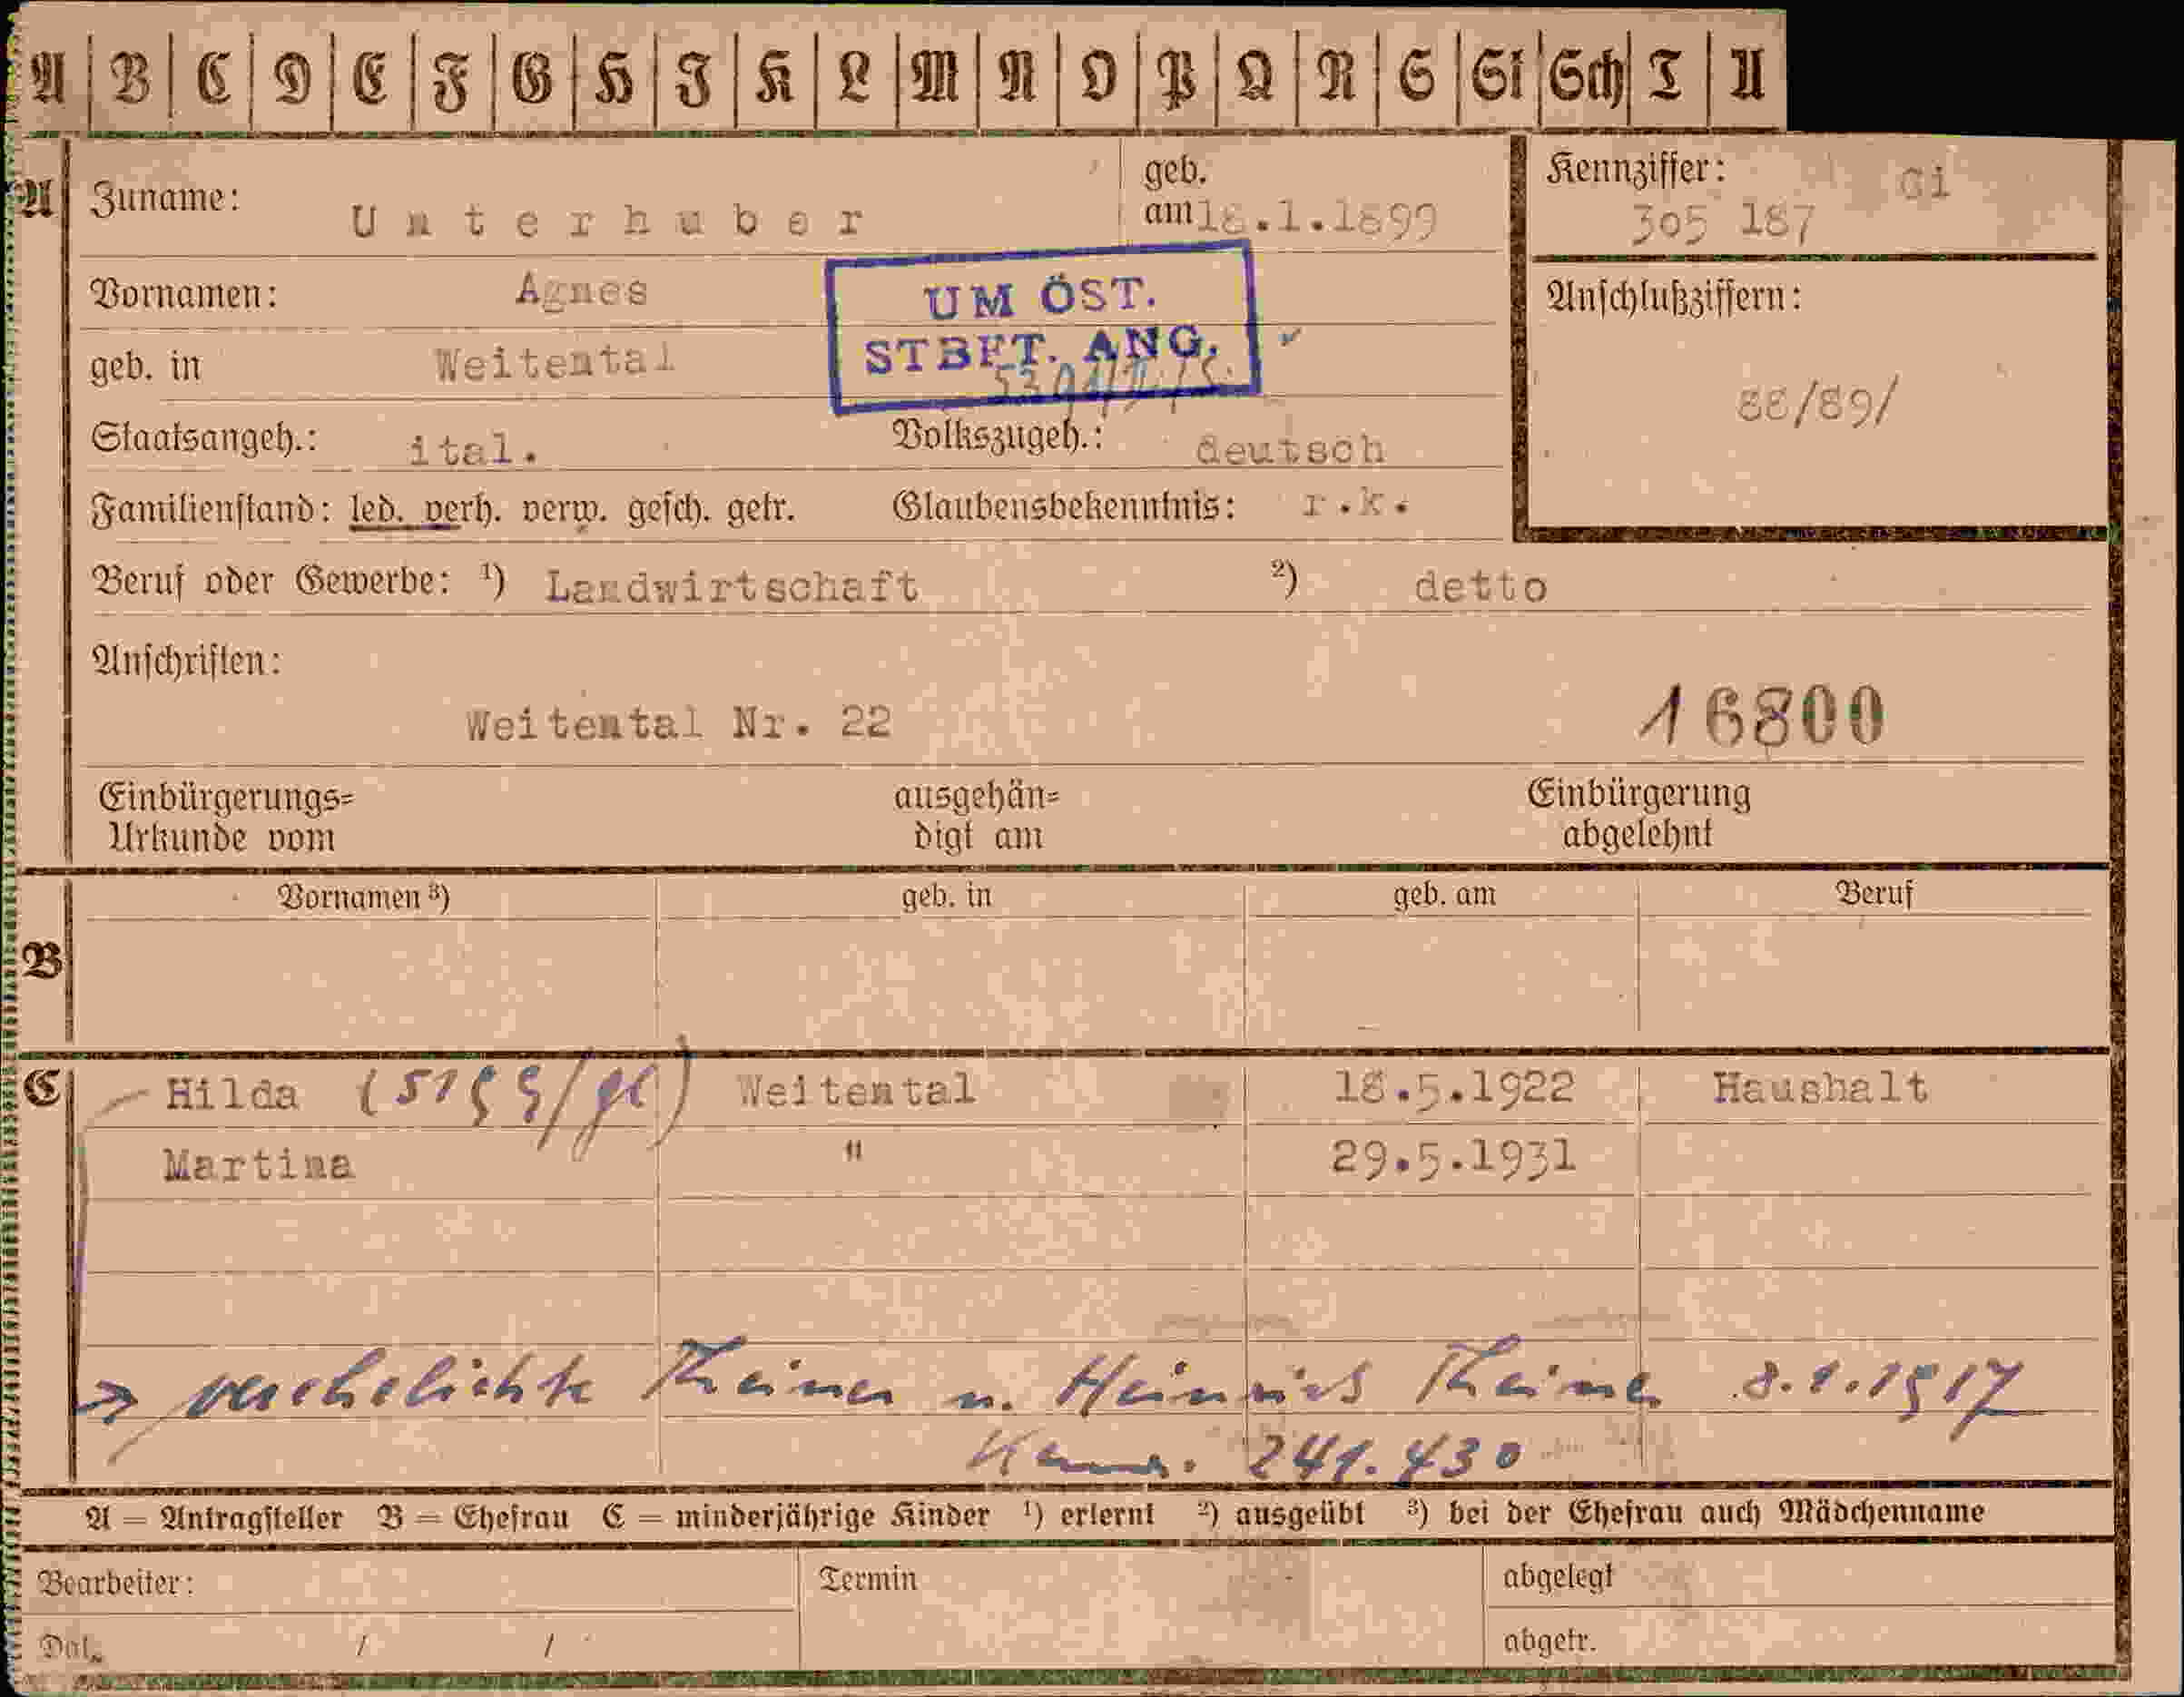 A B C D E F G H J K L M N O P Q R S St Sch T U
A Zuname: Unterhuber geb. am 18.1.1899 Kennziffer: Gi 305 187
Vornamen: Agnes
UM ÖST.
STBFT. ANG.
Anschlußziffern: 88/89/
geb. in Weitental
Staatsangeh.: ital. Volkszugeh.: deutsch
Familienstand: led. verh. verw. gesch. getr. Glaubensbekenntnis: r.k.
Beruf oder Gewerbe: 1) Landwirtschaft 2) detto
Anschriften:
Weitental Nr. 22 16800
Einbürgerungs= ausgehän= Einbürgerung
Urkunde vom digt am abgelehnt
Vornamen 3) geb. in geb. am Beruf
B
C Hilda Weitental 18.5.1922 Haushalt
Martina " 29.5.1931
→ verehelichte Theiner m. Heinrich Theiner 8.1.1917
241.430
A = Antragsteller B = Ehefrau C = minderjährige Kinder 1) erlernt 2) ausgeübt 3) bei der Ehefrau auch Mädchenname
Bearbeiter: Termin abgelegt
Dat. / / abgetr.